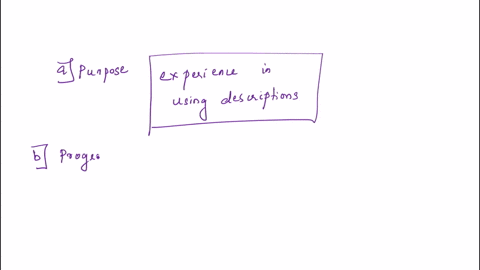 a] Purpose
experience in
using descriptions
b] Proges